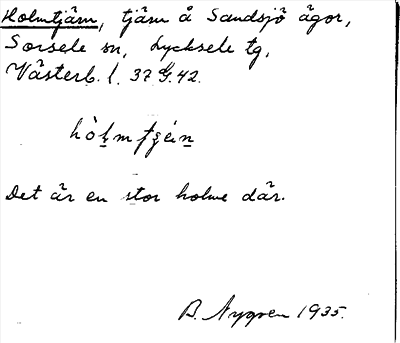 Holmtjärn, tjärn å Sandsjö ägor,
Sorsele sn, Lycksele tg,
Västerb. l. 37 G. 42.
Det är en stor holme där.
B. Nygren 1935.